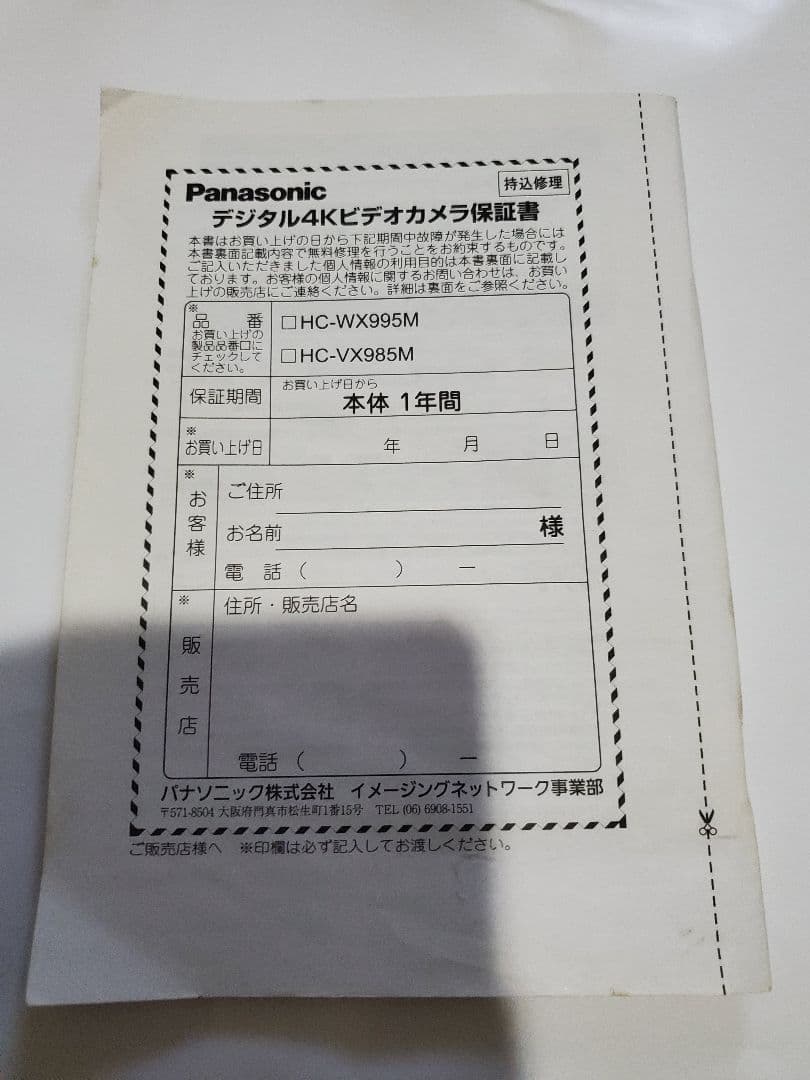 Panasonic
持込修理
デジタル4Kビデオカメラ保証書
本書はお買い上げの日から下記期間中故障が発生した場合には
本書裏面記載内容で無料修理を行うことをお約束するものです。
ご記入いただきました個人情報の利用目的は本書裏面に記載し
ております。お客様の個人情報に関するお問い合わせは、お買い
上げの販売店にご連絡ください。詳細は裏面をご参照ください。
※
品 番
お買い上げの
製品品番口に
チェックして
ください。
□HC-WX995M
□HC-VX985M
保証期間
お買い上げ日から
本体 1年間
※
お買い上げ日
年 月 日
※
お客様
ご住所
お名前 様
電 話 ( ) ー
※
販売店
住所・販売店名
電話 ( ) ー
パナソニック株式会社 イメージングネットワーク事業部
〒571-8504 大阪府門真市松生町1番15号 TEL (06) 6908-1551
ご販売店様へ ※印欄は必ず記入してお渡しください。